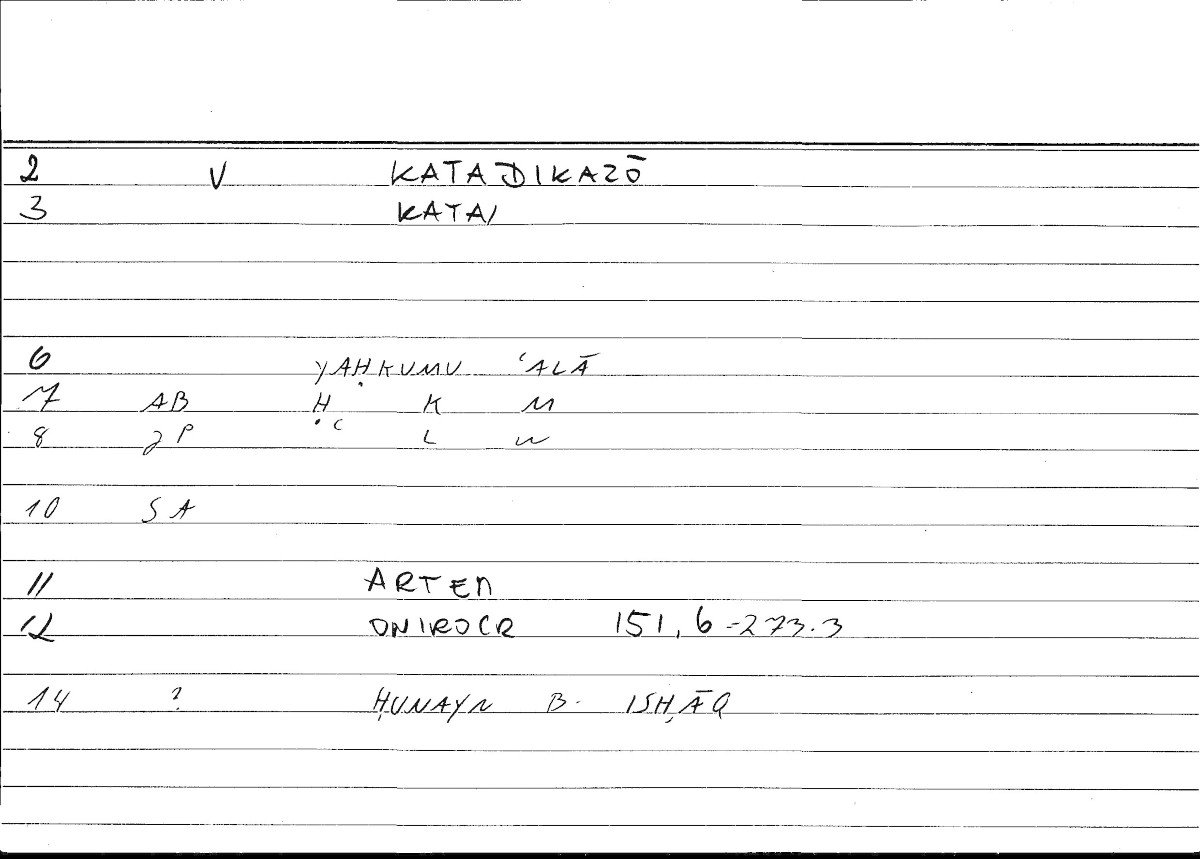 2 V KATADIKAZŌ
3 KATA/
6 YAḤKUMU ʿALĀ
7 AB Ḥ K M
8 2P ʿ L W
10 SA
11 ARTEM
12 ONIROCR 151,6-273.3
14 ? ḤUNAYN B. ISḤĀQ